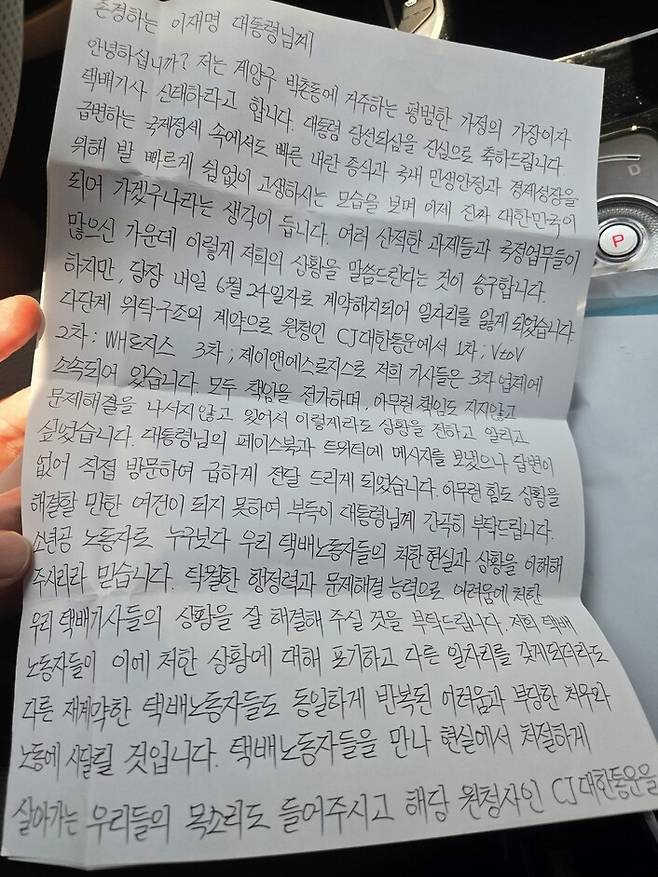 존경하는 이재명 대통령님께
안녕하십니까? 저는 계양구 박촌동에 거주하는 평범한 가정의 가장이자
택배기사 신태하라고 합니다. 대통령 당선되심을 진심으로 축하드립니다.
급변하는 국제정세 속에서도 빠른 내란 종식과 국내 민생안정과 경제성장을
위해 발 빠르게 쉼없이 고생하시는 모습을 보며 이제 진짜 대한민국이
되어 가겠구나라는 생각이 듭니다. 여러 산적한 과제들과 국정업무들이
많으신 가운데 이렇게 저희의 상황을 말씀드린다는 것이 송구합니다.
하지만, 당장 내일 6월 24일자로 계약해지되어 일자리를 잃게 되었습니다.
다단계 위탁구조의 계약으로 원청인 CJ대한통운에서 1차; VtoV
2차: WH로지스 3차; 제이앤에스로지스로 저희 기사들은 3차 업체에
소속되어 있습니다. 모두 책임을 전가하며, 아무런 책임도 지지않고
문제해결을 나서지않고 있어서 이렇게라도 상황을 전하고 알리고
싶었습니다. 대통령님의 페이스북과 트위터에 메시지를 보냈으나 답변이
없어 직접 방문하여 급하게 전달 드리게 되었습니다. 아무런 힘도 상황을
해결할 만한 여건이 되지 못하여 부득이 대통령님께 간곡히 부탁드립니다.
소년공 노동자로 누구보다 우리 택배노동자들의 처한 현실과 상황을 이해해
주시리라 믿습니다. 탁월한 행정력과 문제해결 능력으로 어려움에 처한
우리 택배기사들의 상황을 잘 해결해 주실 것을 부탁드립니다. 저희 택배
노동자들이 이에 처한 상황에 대해 포기하고 다른 일자리를 갖게되더라도
다른 재계약한 택배노동자들도 동일하게 반복된 어려움과 부당한 처우와
노동에 시달릴 것입니다. 택배노동자들을 만나 현실에서 처절하게
살아가는 우리들의 목소리도 들어주시고 해당 원청사인 CJ대한통운을
D
P